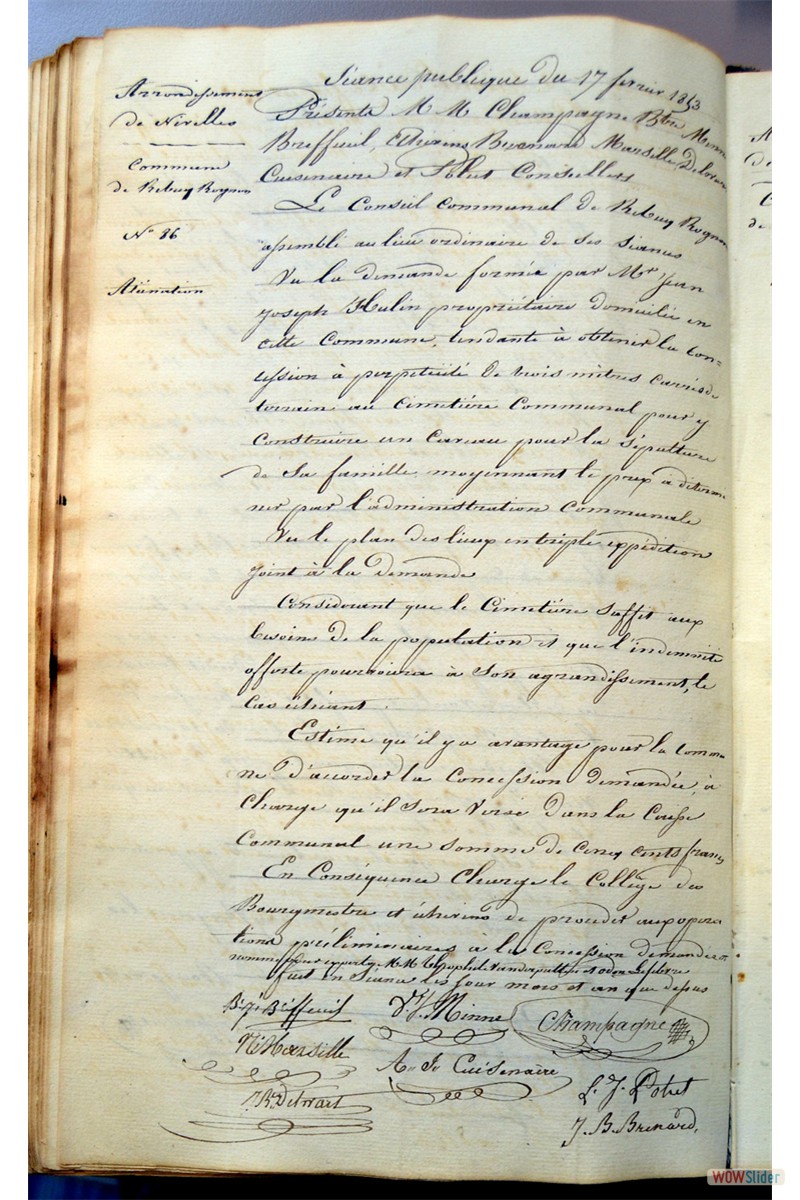 Séance publique du 17 fevrier 1853
Arrondissement
de Nivelles
Commune
de Rebecq Rognon
N° 86
Aliénation
Présents M M Champagne Btre Minne
Breffeuil, Echevins Brenard Marsille Delwart
Cuisenaire et Conseillers
Le Conseil Communal de Rebecq Rognon
assemblé au lieu ordinaire de ses séances
Vu la demande formée par Mr Jean
Joseph Hulin propriétaire domicilié en
cette Commune, tendante à obtenir la con=
cession à perpétuité de trois mètres carrés de
terrain au Cimetière Communal pour y
Construire un Caveau pour la Sépulture
de Sa famille, moyennant le prix a déterme
ner par l'administration Communale
Vu le plan des lieux en triple expédition
joint à la demande
Considerant que le Cimetière Suffit aux
besoins de la population et que l'indemnité
offerte pourvoiera à Son agrandissement, le
Cas échéant.
Estime qu'il y a avantage pour la Commu
ne d'accorder la Concession Demandée, à
Charge qu'il Sera Versé Dans la Caisse
Communal une Somme de Cinq Cents francs
En Conséquence Charge le Collège des
Bourgmestre et échevins de procéder aux opera
tions préliminaires à la Concession demandée
nomme pour experts M M Théophile Vanderputten et odon Lefebvre
fait en Séance les jour mois et an que dessus
B. J. Bréffeuil V. J. Minne Champagne
N. Marsille A. J. Cuisenaire
J. B. Delwart L. J.
J. B. Brenard,
WOWSlider